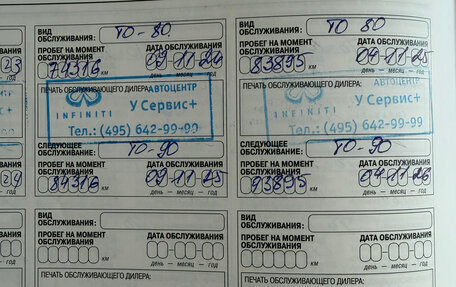 ВИД ОБСЛУЖИВАНИЯ: ТО-80
ПРОБЕГ НА МОМЕНТ ОБСЛУЖИВАНИЯ
ДАТА ОБСЛУЖИВАНИЯ
74316 км 09-11-24
ПЕЧАТЬ ОБСЛУЖИВАЮЩЕГО ДИЛЕРА:
АВТОЦЕНТР
У Сервис+
INFINITI
Тел.: (495) 642-99-99
СЛЕДУЮЩЕЕ ОБСЛУЖИВАНИЕ: ТО-90
ПРОБЕГ НА МОМЕНТ ОБСЛУЖИВАНИЯ
ДАТА ОБСЛУЖИВАНИЯ
84316 км 09-11-25
день — месяц — год
ВИД ОБСЛУЖИВАНИЯ:
ПРОБЕГ НА МОМЕНТ ОБСЛУЖИВАНИЯ
ДАТА ОБСЛУЖИВАНИЯ
км
день — месяц — год
ПЕЧАТЬ ОБСЛУЖИВАЮЩЕГО ДИЛЕРА:
ВИД ОБСЛУЖИВАНИЯ: ТО 80
ПРОБЕГ НА МОМЕНТ ОБСЛУЖИВАНИЯ
ДАТА ОБСЛУЖИВАНИЯ
83895 км 04-11-25
ПЕЧАТЬ ОБСЛУЖИВАЮЩЕГО ДИЛЕРА:
АВТОЦЕНТР
У Сервис+
INFINITI
Тел.: (495) 642-99-99
СЛЕДУЮЩЕЕ ОБСЛУЖИВАНИЕ: ТО-90
ПРОБЕГ НА МОМЕНТ ОБСЛУЖИВАНИЯ
ДАТА ОБСЛУЖИВАНИЯ
93895 км 04-11-26
день — месяц — год
ВИД ОБСЛУЖИВАНИЯ:
ПРОБЕГ НА МОМЕНТ ОБСЛУЖИВАНИЯ
ДАТА ОБСЛУЖИВАНИЯ
км
день — месяц — год
ПЕЧАТЬ ОБСЛУЖИВАЮЩЕГО ДИЛЕРА: